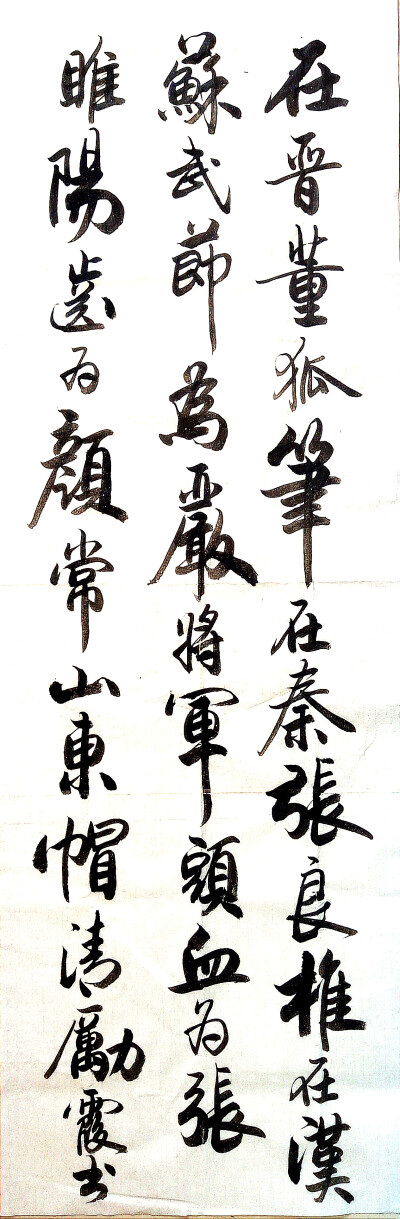 在晉董狐筆在秦張良椎在漢
蘇武節為嚴將軍頭血為張
睢陽齒為顏常山東帽清勵霞书